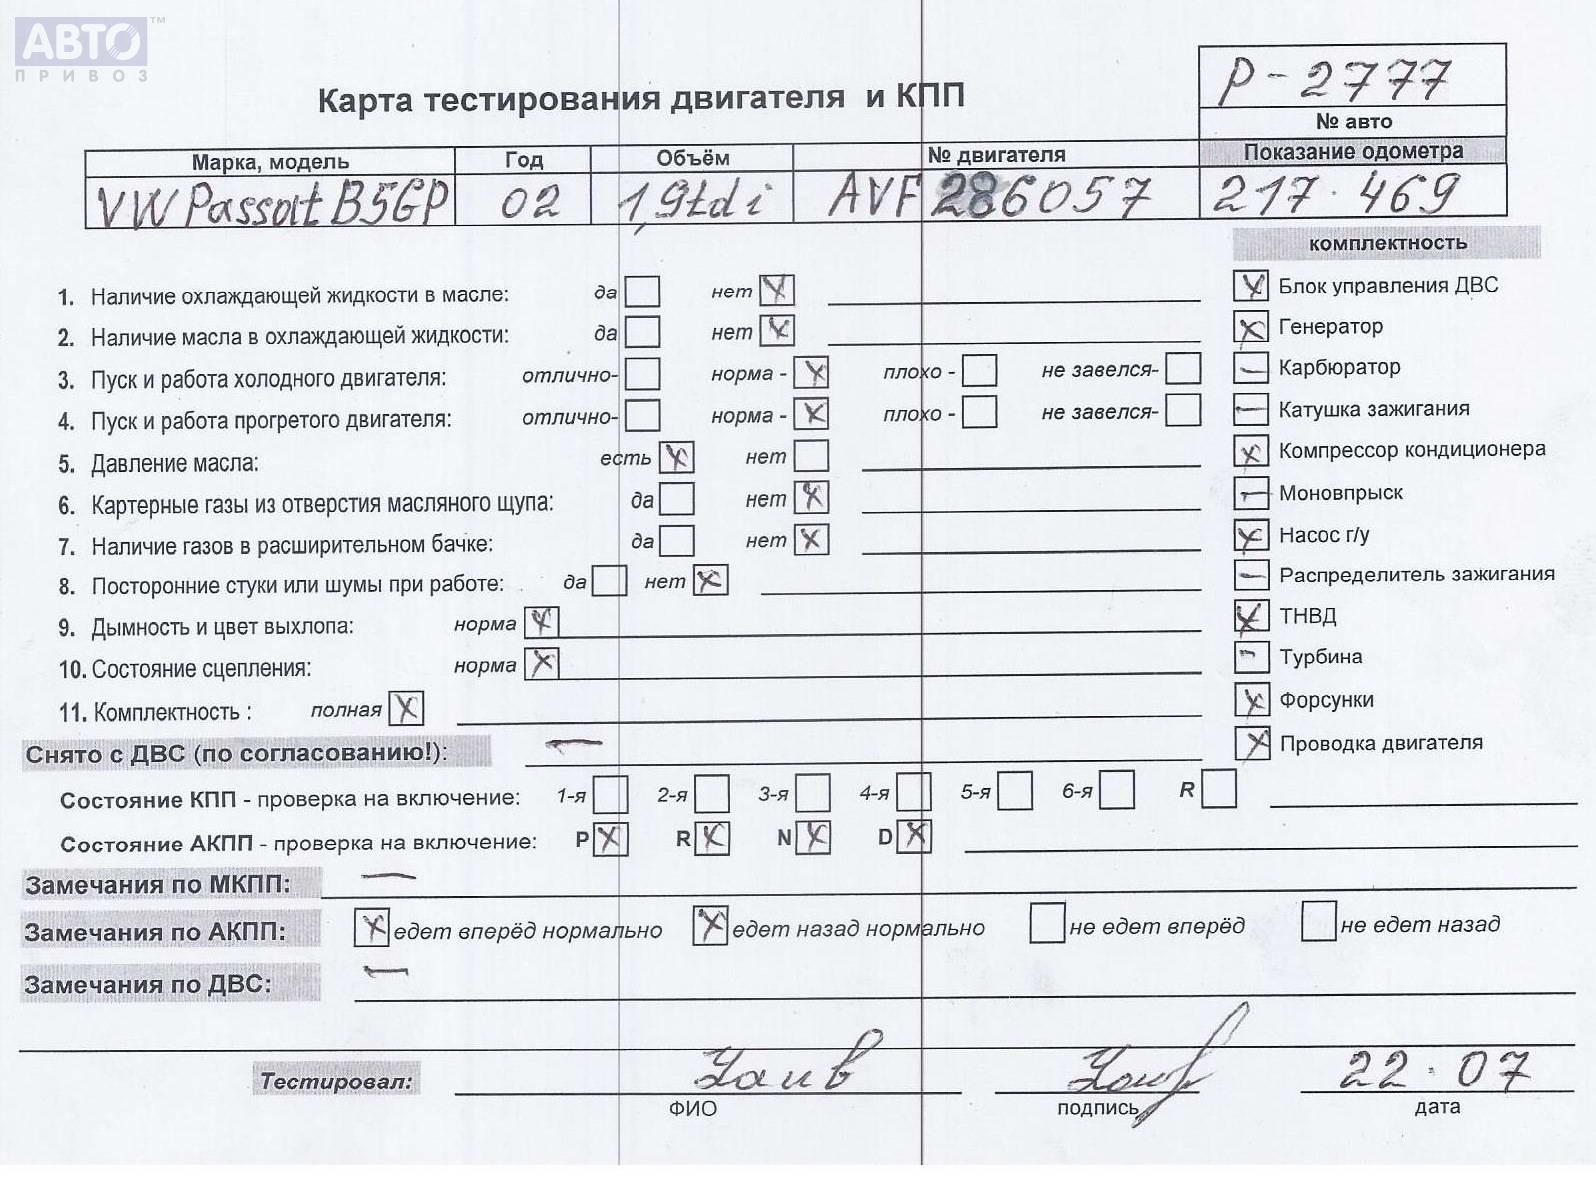 АВТО™
ПРИВОЗ
Карта тестирования двигателя и КПП
Р-2777
№ авто
Марка, модель Год Объём № двигателя Показание одометра
VW Passat B5GP 02 1,9tdi AVF 286057 217.469
комплектность
1. Наличие охлаждающей жидкости в масле: да нет
Блок управления ДВС
2. Наличие масла в охлаждающей жидкости: да нет
Генератор
3. Пуск и работа холодного двигателя: отлично- норма - плохо - не завелся-
Карбюратор
4. Пуск и работа прогретого двигателя: отлично- норма - плохо - не завелся-
Катушка зажигания
5. Давление масла: есть нет
Компрессор кондиционера
6. Картерные газы из отверстия масляного щупа: да нет
Моновпрыск
7. Наличие газов в расширительном бачке: да нет
Насос г/у
8. Посторонние стуки или шумы при работе: да нет
Распределитель зажигания
9. Дымность и цвет выхлопа: норма
ТНВД
10. Состояние сцепления: норма
Турбина
11. Комплектность : полная
Форсунки
Снято с ДВС (по согласованию!): —
Проводка двигателя
Состояние КПП - проверка на включение: 1-я 2-я 3-я 4-я 5-я 6-я R
Состояние АКПП - проверка на включение: P R N D
Замечания по МКПП: —
Замечания по АКПП: едет вперёд нормально едет назад нормально не едет вперёд не едет назад
Замечания по ДВС: —
Тестировал: 22.07
ФИО подпись дата